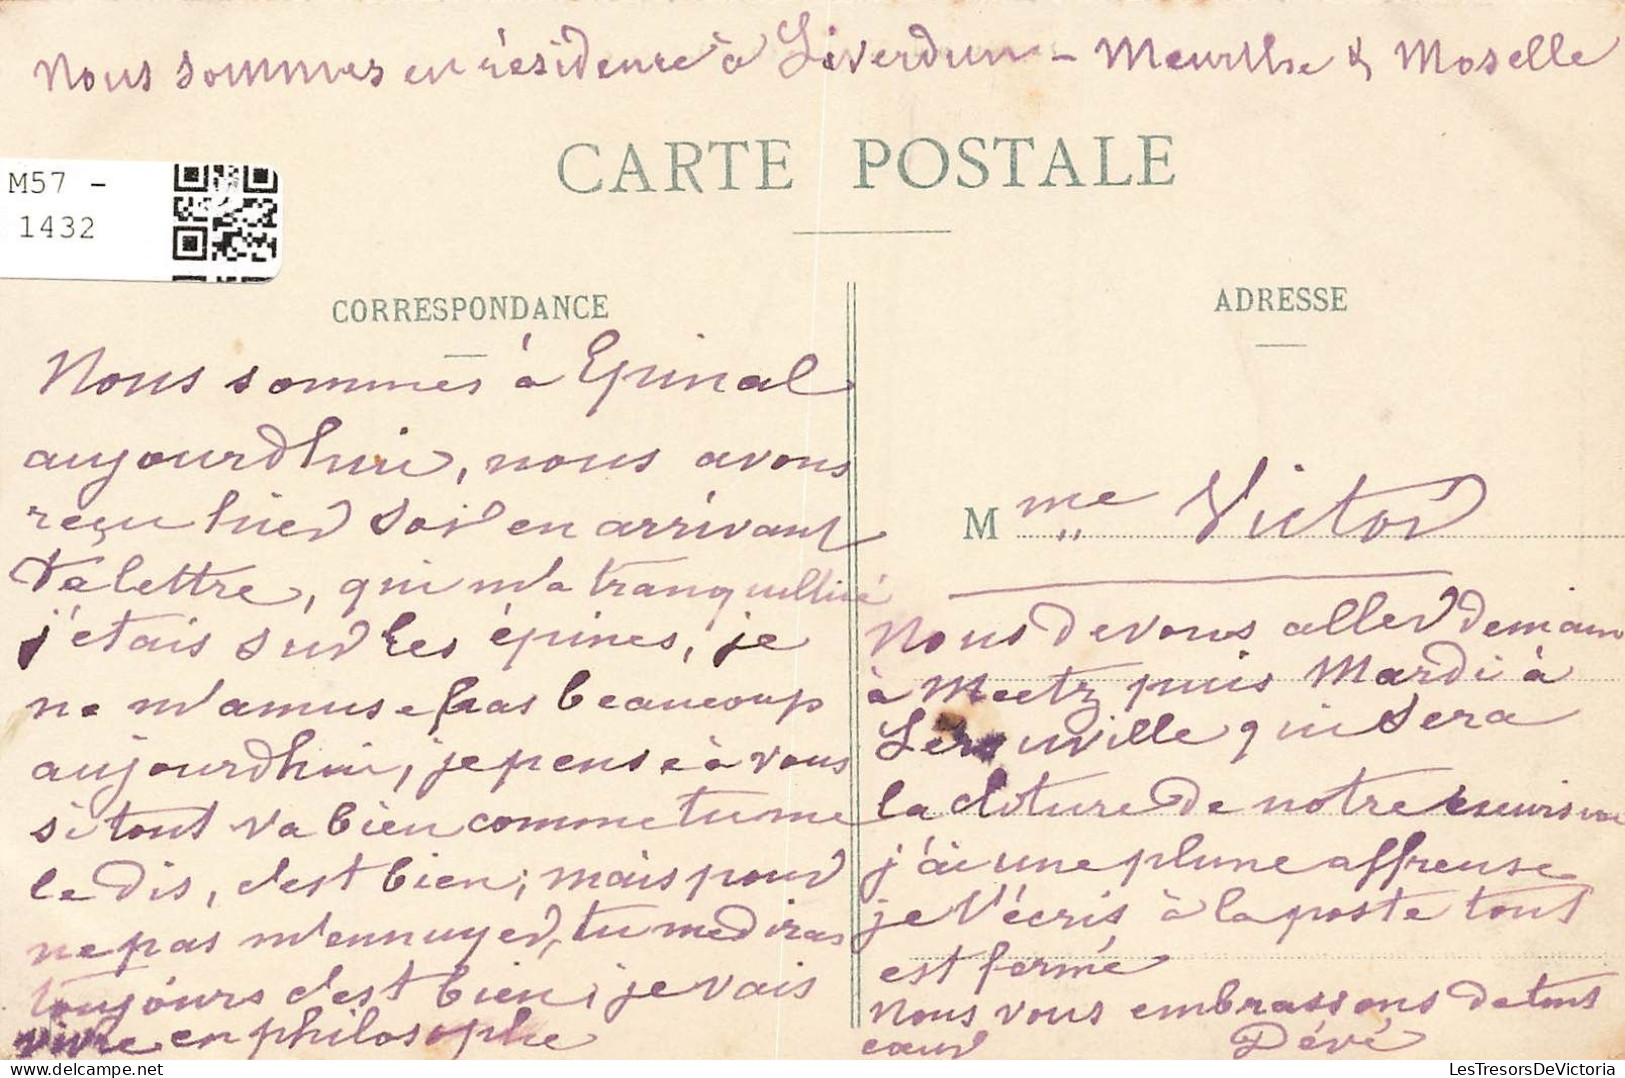 Nous sommes en résidence à Liverdun - Meurthe & Moselle
CARTE POSTALE
M57 -
1432
CORRESPONDANCE
ADRESSE
Nous sommes à Epinal
aujourdhui, nous avons
reçu hier soir en arrivant
ta lettre, qui m'a tranquillisé
j'etais sur les épines, je
ne m'amuse pas beaucoup
aujourdhui, je pense à vous
si tout va bien comme tu me
le dis, c'est bien, mais pour
ne pas m'ennuyer, tu me diras
toujours c'est bien, je vais
vivre en philosophe
Mme Victor
Nous devons aller demain
à Metz puis Mardi à
Lerouville qui sera
la cloture de notre
j'ai une plume affreuse
je t'écris à la poste tout
est fermé
nous vous embrassons de tous
cœur Dévé
LesTresorsDeVictoria